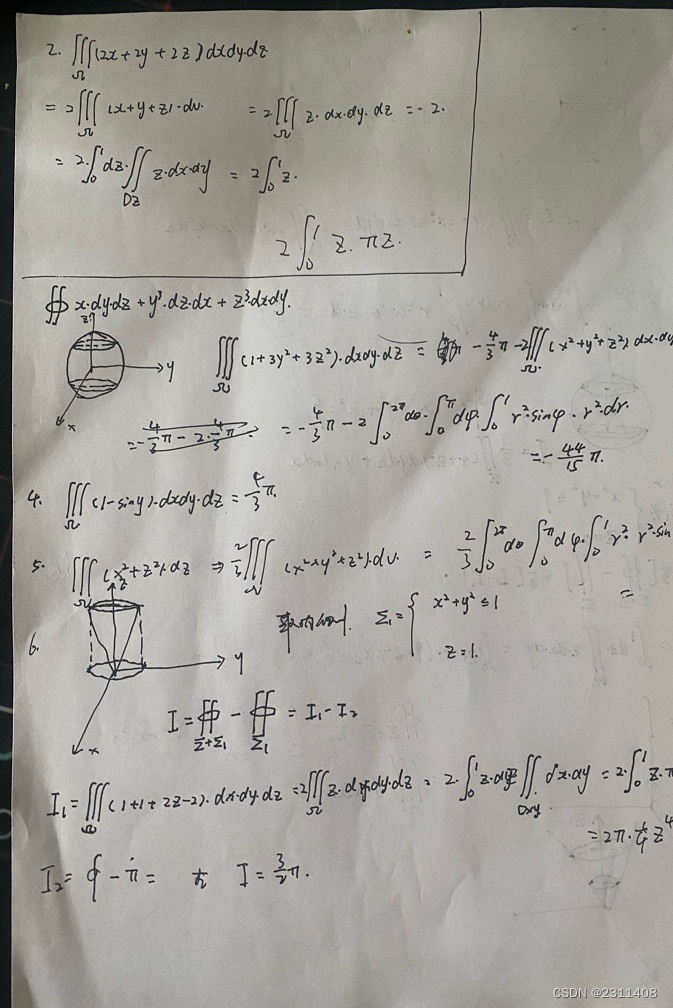 2. ∭Ω (2x+2y+2z) dxdy·dz
= 2∭Ω (x+y+z)·dv. = 2∭Ω z·dx·dy·dz = -2.
= 2·∫₀¹ dz·∬Dz z·dx·dy = 2∫₀¹ z·
2∫₀¹ z·πz.
∯ x·dy·dz + y³·dz·dx + z³·dxdy.
z
y
x
∭Ω (1+3y²+3z²)·dxdy·dz = -4/3π -2∭Ω (x²+y²+z²) dx·dy
= -4/3π - 2·4/3π = -4/3π - 2∫₀^2π dθ·∫₀^π dφ·∫₀¹ r²·sinφ·r²·dr.
= -44/15 π.
4. ∭Ω (1-siny)·dxdy·dz = 4/3π.
5. ∭Ω (x²+z²)·dz ⇒ 2/3∭Ω (x²+y²+z²)·dv. = 2/3∫₀^2π dθ ∫₀^π dφ·∫₀¹ r²· r²·sin
=
6.
z
y
x
Σ₁ = { x²+y² ≤ 1
z=1.
I = ∯Σ+Σ₁ - ∯Σ₁ = I₁ - I₂
I₁ = ∭Ω (1+1+2z-2)·dx·dy·dz = 2∭Ω z·dxdy·dz = 2·∫₀¹ z·dz ∬Dxy dx·dy = 2·∫₀¹ z·π
= 2π·1/4 z⁴
I₂ = -π = I = 3/2π.
CSDN @2311408